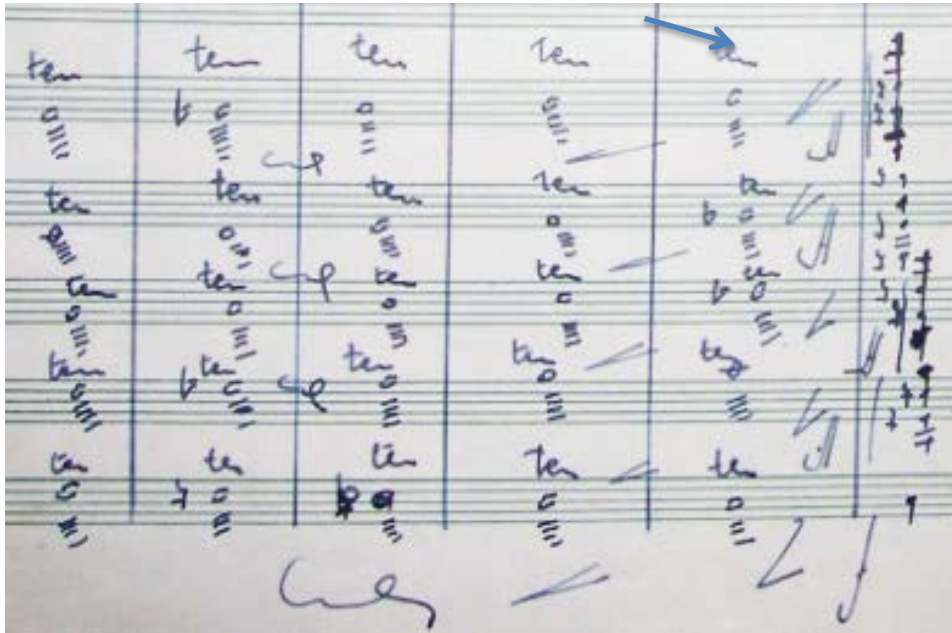 ten ten ten ten ten
ten ten ten ten ten
ten ten ten ten ten
ten ten ten ten ten
ten ten ten ten ten